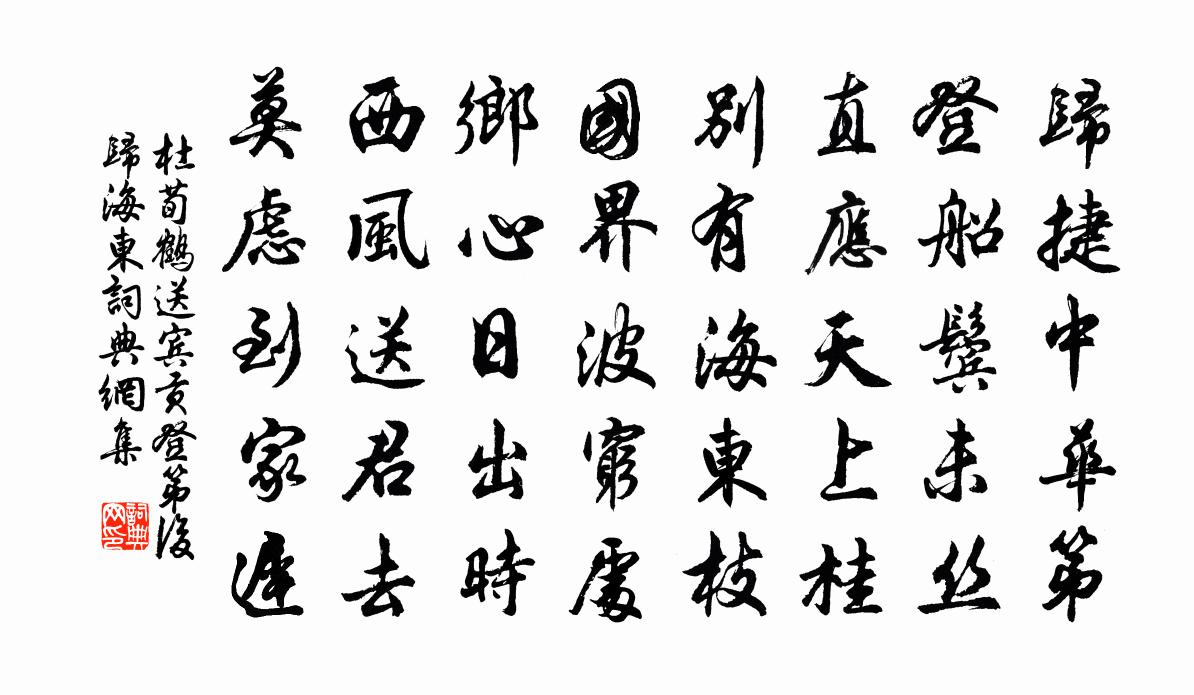 歸捷中華第
登船鬓未丝
直應天上桂
別有海東枝
國界波窮處
鄉心日出時
西風送君去
莫慮到家遲
杜荀鶴送宾贡登第後
歸海東詞典網集
詞典
网印